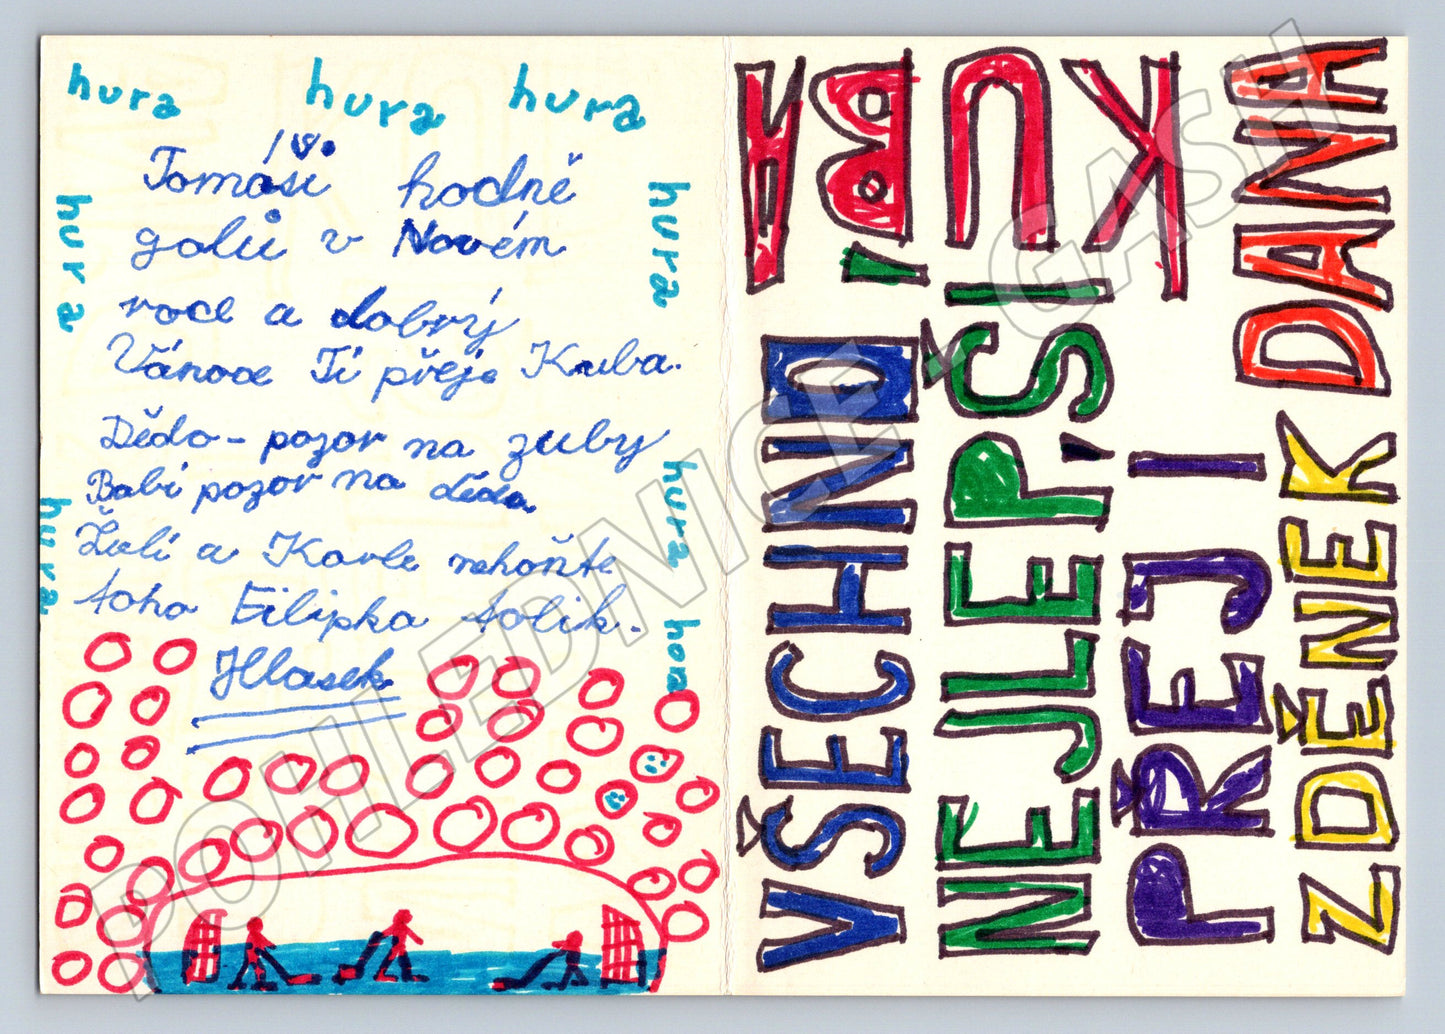 hura hura hura
Tomáši hodně
gólů v Novém
roce a dobrý
Vánoce Ti přeje Kuba.
Dědo - pozor na zuby
Babi pozor na dědo
Žuli a Karle nehoňte
toho Filipka tolik.
Hlasek
hura
hura
hura
hura
hura
VŠECHNO
NEJLEPŠÍ
PŘEJÍ
ZDĚNEK DANA
KUBA
POHLEDNICE - GASH